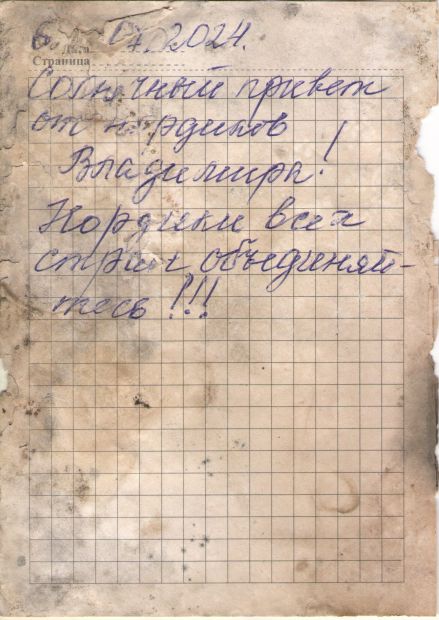 6. 07.2024.
Дата
Страница
Солнечный привет
от нордиков
Владимира!
Нордики всех
стран объединяй-
тесь!!!